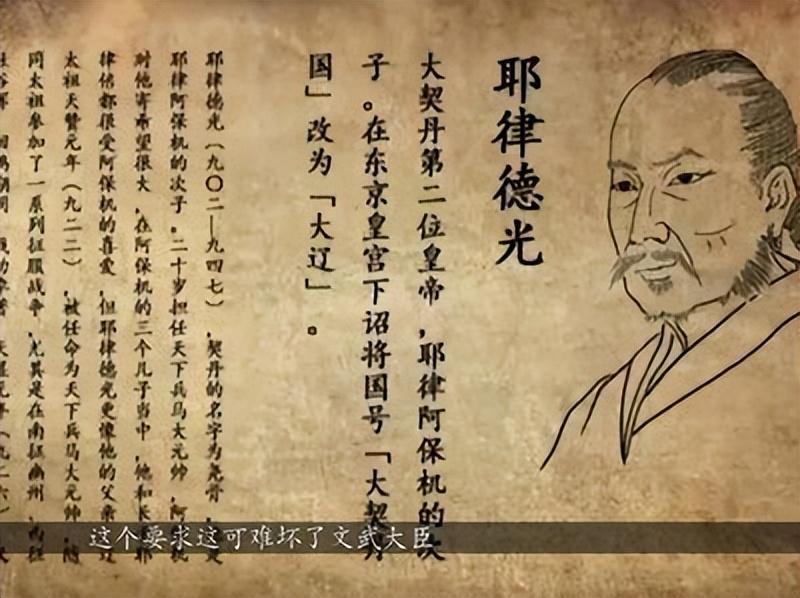 耶律德光
大契丹第二位皇帝，耶律阿保机的次
子。在东京皇宫下诏将国号「大契丹
国」改为「大辽」。
耶律德光（九〇二—九四七），契丹的名字为尧骨，
耶律阿保机的次子。二十岁担任天下兵马大元帅，阿 机
对他寄希望很大，在阿保机的三个儿子当中，他和长 耶
律倍都很受阿保机的喜爱，但耶律德光更像他的父亲 辽
太祖天赞元年（九二二），被任命为天下兵马大元帅，随
同太祖参加了一系列征服战争，尤其是在南征幽州、西征
这个要求这可难坏了文武大臣